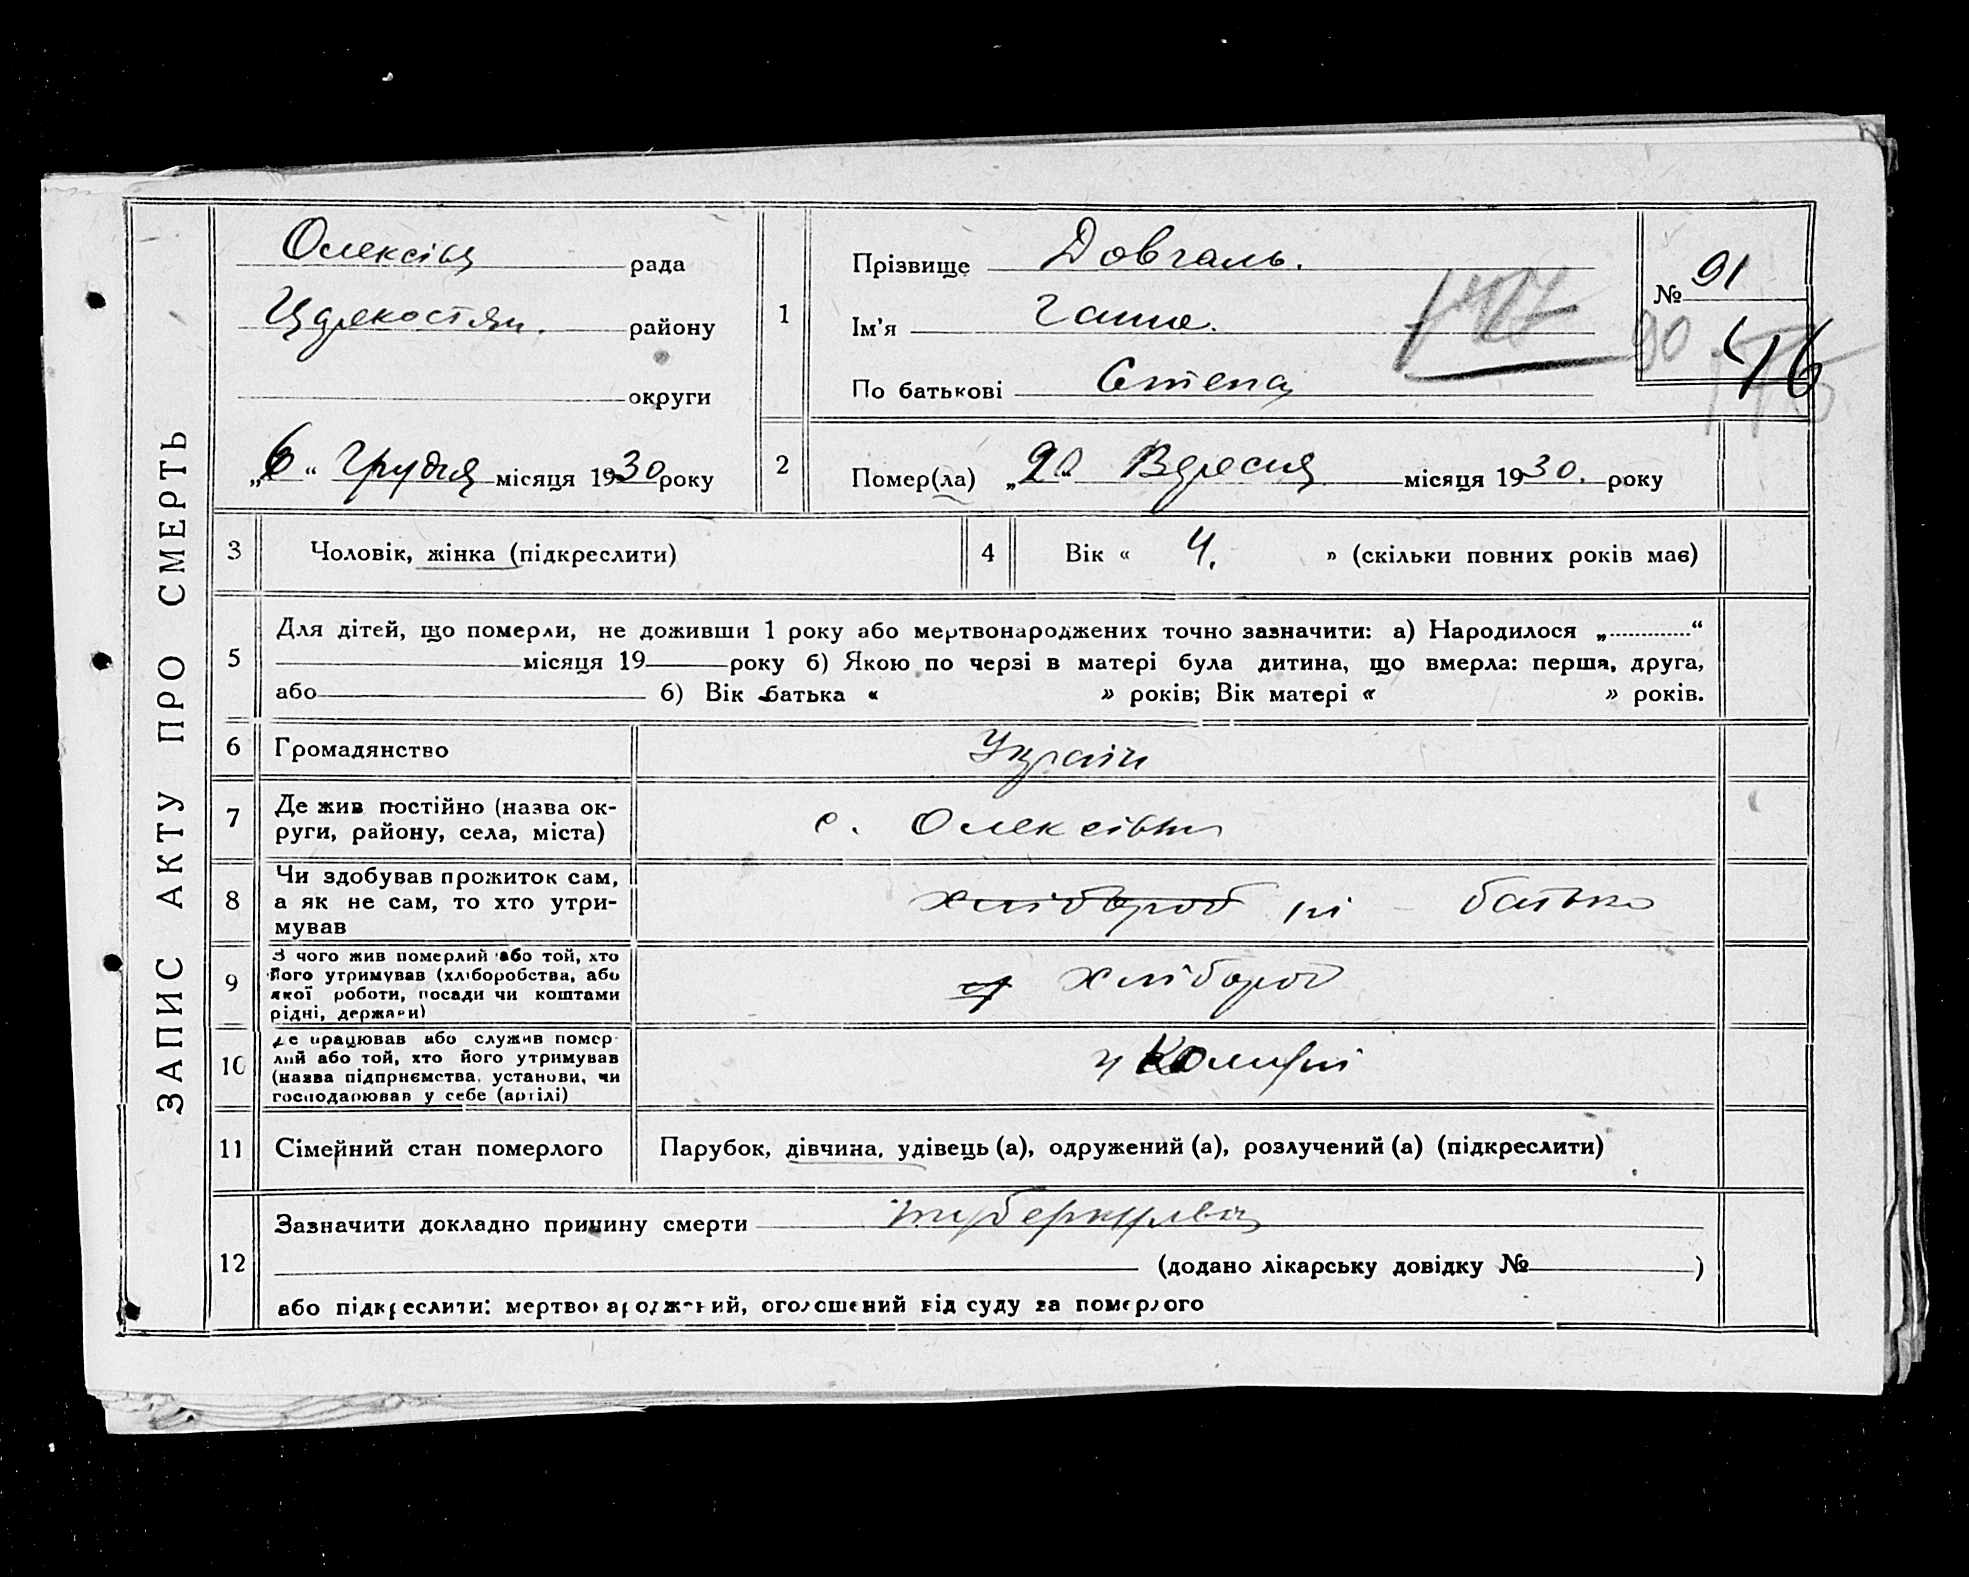 ЗАПИС АКТУ ПРО СМЕРТЬ
Олексіvц рада
району
округи
„6“ Грудня місяця 1930 року
1
Прізвище Довгаль.
Ім'я Ганна.
По батькові Степан
№ 91
90
2
Помер(ла) „20“ Вересня місяця 1930. року
3
Чоловік, жінка (підкреслити)
4
Вік « 4. » (скільки повних років має)
5
Для дітей, що померли, не доживши 1 року або мертвонароджених точно зазначити: а) Народилося „............“
місяця 19 року б) Якою по черзі в матері була дитина, що вмерла: перша, друга,
або б) Вік батька « » років; Вік матері « » років.
6
Громадянство
Україн
7
Де жив постійно (назва ок-
руги, району, села, міста)
с. Олексівки
8
Чи здобував прожиток сам,
а як не сам, то хто утри-
мував
хлібороб ні - батько
9
З чого жив померлий або той, хто
його утримував (хліборобства, або
якої роботи, посади чи коштами
рідні, держави)
хлібороб
10
Де працював або служив помер-
лий або той, хто його утримував
(назва підпрнємства, установи, чи
господарював у себе (артілі)
11
Сімейний стан померлого
Парубок, дівчина, удівець (а), одружений (а), розлучений (а) (підкреслити)
12
Зазначити докладно причину смерти туберкульоз
(додано лікарську довідку № )
або підкреслити: мертвонароджений, оголошений від суду за померлого